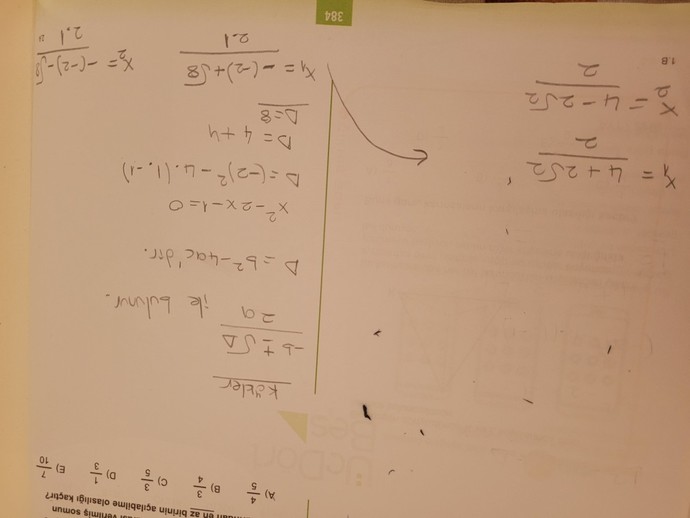 verilmiş somun
en az birinin açılabilme olasılığı kaçtır?
A) 4/5 B) 3/4 C) 3/5 D) 1/3 E) 7/10
kökler
-b ± √Δ / 2a ile bulunur.
Δ = b² - 4ac'dir.
x² - 2x - 1 = 0
Δ = (-2)² - 4.(1.-1)
Δ = 4 + 4
Δ = 8
x₁ = -(-2) + √8 / 2.1
x₂ = -(-2) - √8 / 2.1
x₁ = 4 + 2√2 / 2
x₂ = 4 - 2√2 / 2
384